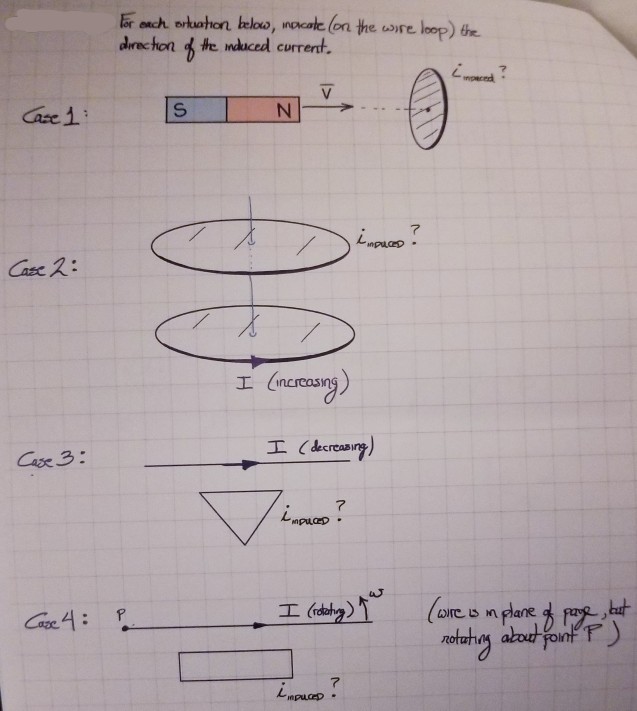 For each situation below, indicate (on the wire loop) the
direction of the induced current.
Case 1:
S N
v
i induced ?
Case 2:
i INDUCED ?
I (increasing)
Case 3:
I (decreasing)
i INDUCED ?
Case 4:
P
I (rotating)
ω
(wire is in plane of page, but
rotating about point P)
i INDUCED ?